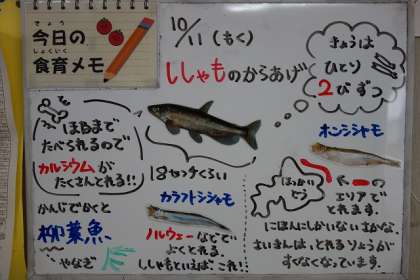 きょう
今日の
しょくいく
食育メモ
10/11(もく)
ししゃものからあげ
きょうは
ひとり
2ひきずつ
ほねまで
たべられるので
カルシウムが
たくさんとれる!!
かんじでかくと
柳葉魚
やなぎ
18センチくらい
カラフトシシャモ
ノルウェーなどで
よくとれる。
ししゃもといえば、これ!
ホンシシャモ
ほっかいどう
エリアで
とれます。
にほんにしかいないさかな。
さいきんは、とれるりょうが
すくなくなっています。